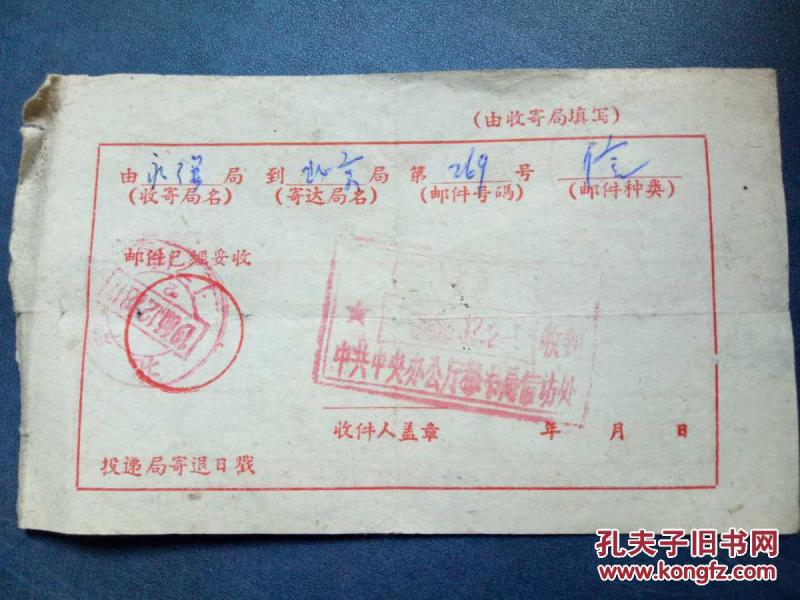 (由收寄局填写)
由永强局 到北京局 第269号 信
(收寄局名) (寄达局名) (邮件号碼) (邮件种类)
邮件已經妥收
收到
中共中央办公厅秘书局信访处
收件人盖章 年 月 日
投递局寄退日戳
孔夫子旧书网
www.kongfz.com